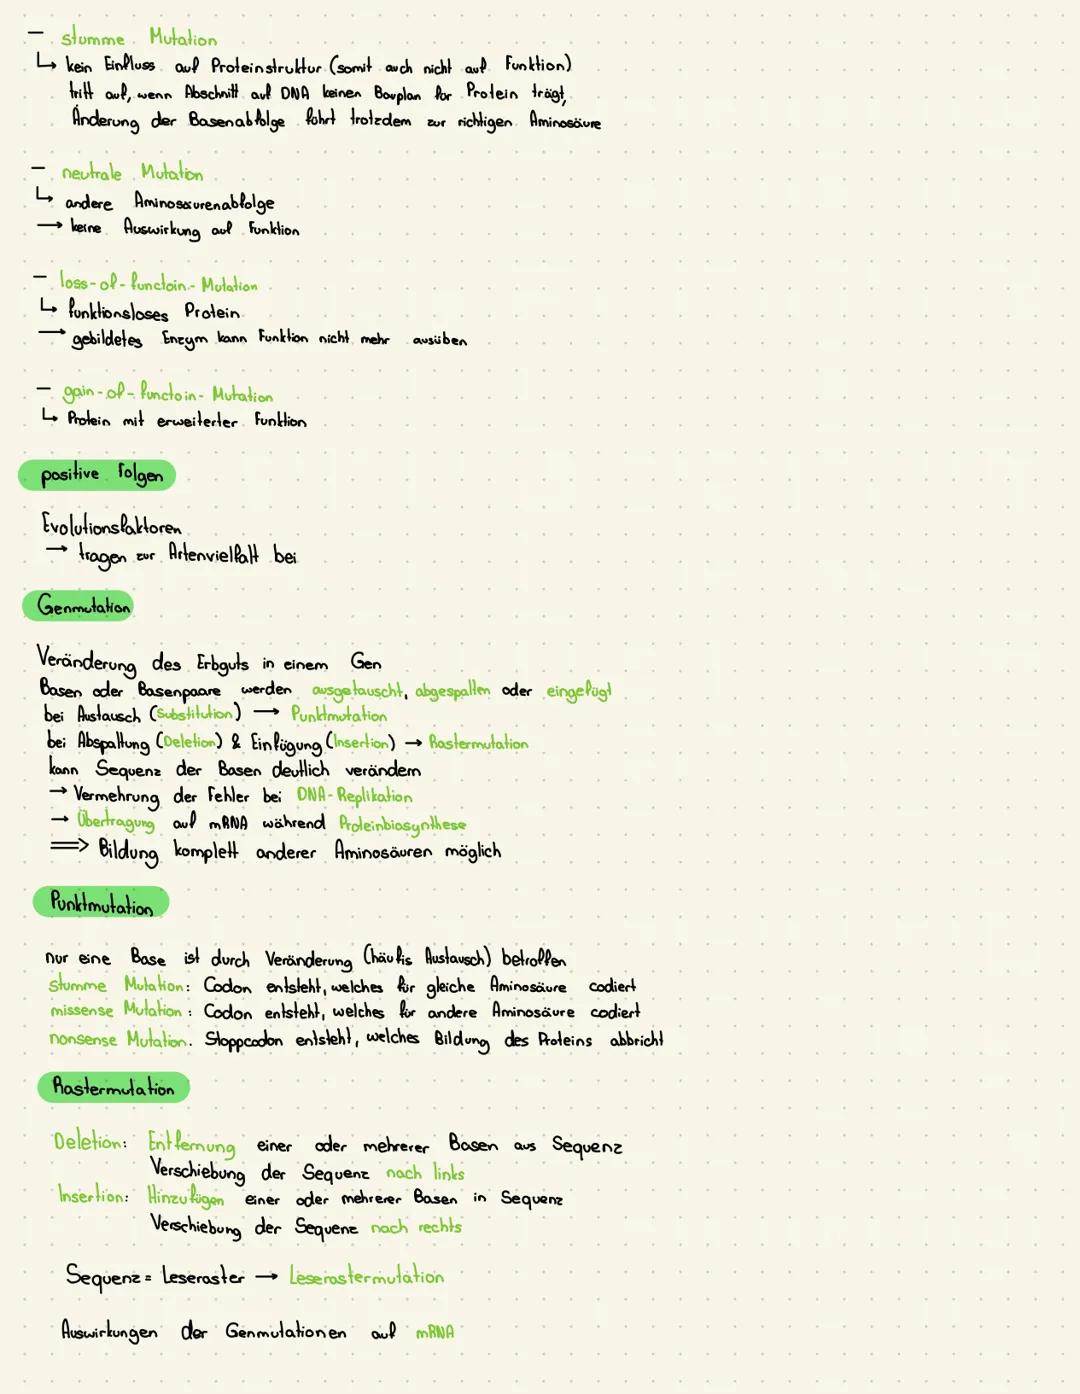 – stumme Mutation
↳ kein Einfluss auf Proteinstruktur (somit auch nicht auf Funktion)
tritt auf, wenn Abschnitt auf DNA keinen Bauplan für Protein trägt,
Änderung der Basenabfolge führt trotzdem zur richtigen Aminosäure
– neutrale Mutation
↳ andere Aminosäurenabfolge
→ keine Auswirkung auf Funktion
– loss-of-functoin-Mutation
↳ funktionsloses Protein
→ gebildetes Enzym kann Funktion nicht mehr ausüben
– gain-of-functoin-Mutation
↳ Protein mit erweiterter Funktion
positive Folgen
Evolutionsfaktoren
→ tragen zur Artenvielfalt bei
Genmutation
Veränderung des Erbguts in einem Gen
Basen oder Basenpaare werden ausgetauscht, abgespalten oder eingefügt
bei Austausch (Substitution) → Punktmutation
bei Abspaltung (Deletion) & Einfügung (Insertion) → Rastermutation
kann Sequenz der Basen deutlich verändern
→ Vermehrung der Fehler bei DNA-Replikation
→ Übertragung auf mRNA während Proteinbiosynthese
⟹ Bildung komplett anderer Aminosäuren möglich
Punktmutation
nur eine Base ist durch Veränderung (häufis Austausch) betroffen
stumme Mutation: Codon entsteht, welches für gleiche Aminosäure codiert
missense Mutation: Codon entsteht, welches für andere Aminosäure codiert
nonsense Mutation: Stoppcodon entsteht, welches Bildung des Proteins abbricht
Rastermutation
Deletion: Entfernung einer oder mehrerer Basen aus Sequenz
Verschiebung der Sequenz nach links
Insertion: Hinzufügen einer oder mehrerer Basen in Sequenz
Verschiebung der Sequenz nach rechts
Sequenz = Leseraster → Leserastermutation
Auswirkungen der Genmutationen auf mRNA